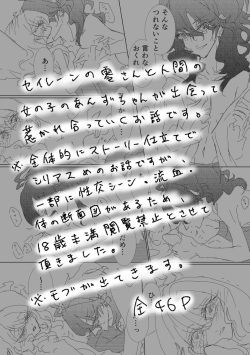 そんな
つれないこと
言わな
おくれ
あ…
セイレーンの零さんと人間の
女の子のあんずちゃんが出会って
惹かれ合っていくお話です。
※全体的にストーリー仕立てで
シリアスめのお話ですが、
一部に性交シーン、流血、
体の断面図があるため
18歳未満閲覧禁止とさせて
頂きました。
※モブが出てきます。
全46P